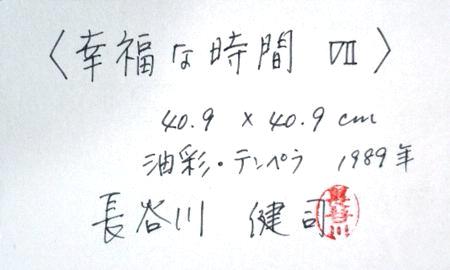 〈幸福な時間 Ⅶ〉
40.9 × 40.9 cm
油彩・テンペラ 1989年
長谷川 健司
長谷川